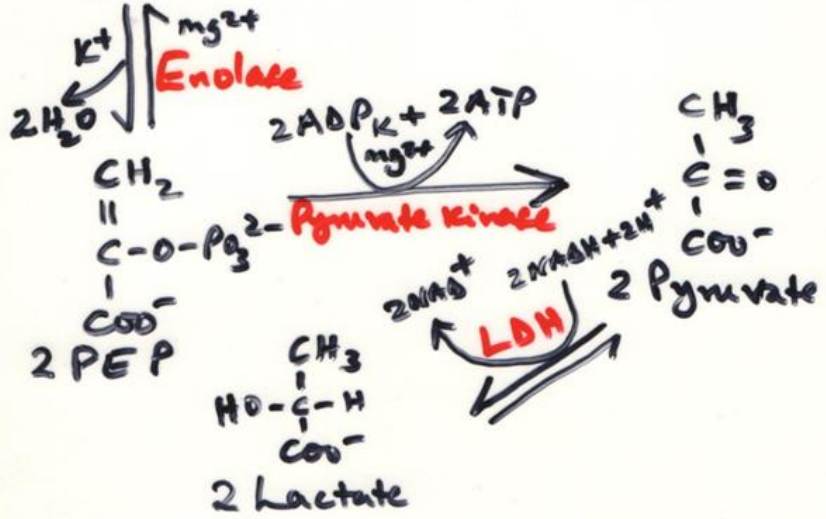 K+ mg2+
Enolase
2H2O
2ADP K+ 2ATP
mg2+
CH2
||
C-O-PO3 2-
|
COO-
2 PEP
Pyruvate kinase
CH3
|
C=O
|
COO-
2 Pyruvate
2NAD+ 2NADH+2H+
LDH
CH3
|
HO-C-H
|
COO-
2 Lactate